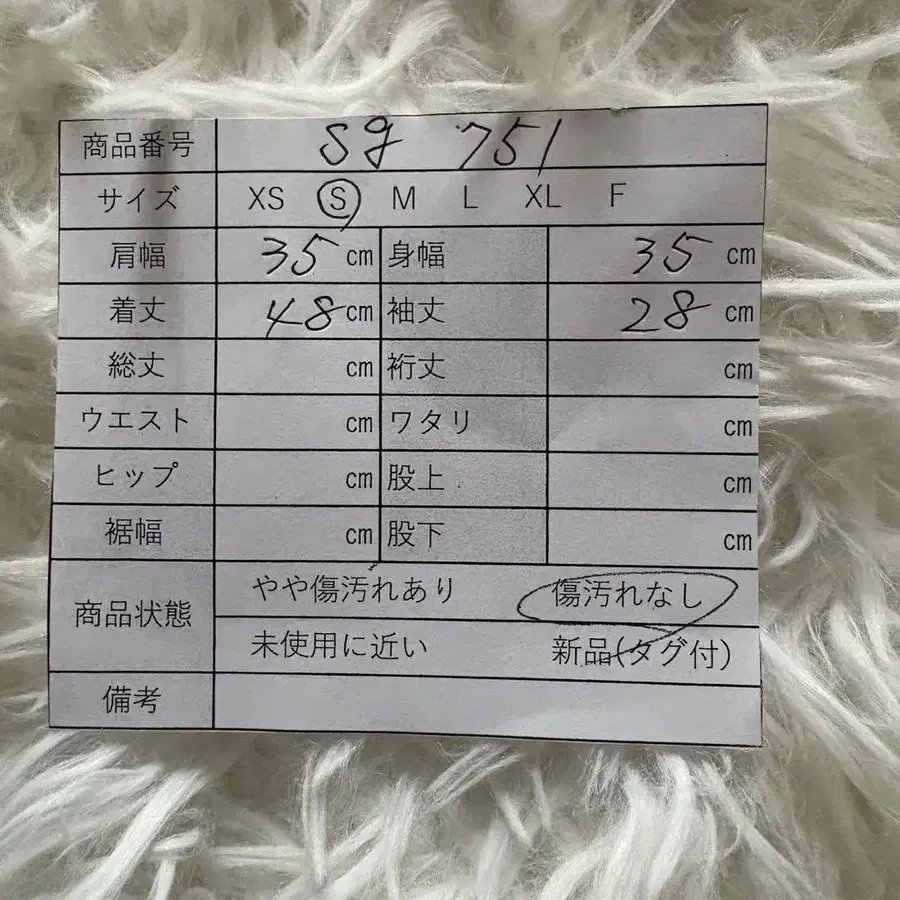 商品番号 sg 751
サイズ XS S M L XL F
肩幅 35 cm 身幅 35 cm
着丈 48 cm 袖丈 28 cm
総丈 cm 裄丈 cm
ウエスト cm ワタリ cm
ヒップ cm 股上 cm
裾幅 cm 股下 cm
商品状態 やや傷汚れあり 傷汚れなし
未使用に近い 新品(タグ付)
備考